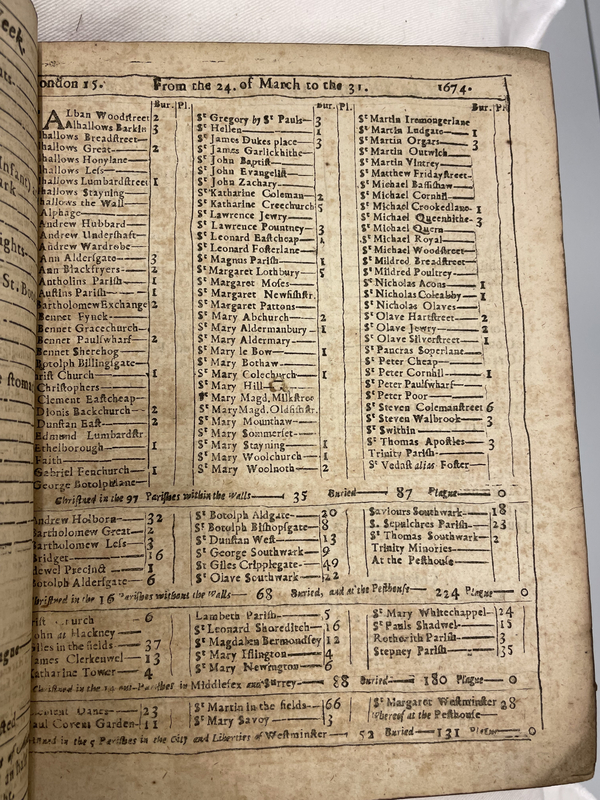 London 15. From the 24. of March to the 31. 1674.
Bur. Pl.
ALban Woodstreet 2
Alhallows Barkin 3
hallows Breadstreet
hallows Great 2
hallows Honylane
hallows Less
hallows Lumbardstreet 1
hallows Stayning
hallows the Wall
Alphage
Andrew Hubbard
Andrew Undershaft
Andrew Wardrobe
Ann Aldersgate 3
Ann Blackfryers 2
Antholins Parish 1
Austins Parish 1
BartholomewExchange 2
Bennet Fynck
Bennet Gracechurch
Bennet Paulswharf 2
Bennet Sherehog
Botolph Billingsgate
rist Church 1
Christophers
Clement Eastcheap
Dionis Backchurch 2
Dunstan East 2
Edmund Lumbardstr.
Ethelborough 1
Faith
Gabriel Fenchurch 1
George Botolphlane
Bur. Pl.
St Gregory by St Pauls 3
St Hellen 1
St James Dukes place 3
St James Garlickhithe
St John Baptist
St John Evangelist
St John Zachary
St Katharine Coleman 2
St Katharine Creechurch 5
St Lawrence Jewry
St Lawrence Pountney 3
St Leonard Eastcheap 1
St Leonard Fosterlane
St Magnus Parish 1
St Margaret Lothbury 5
St Margaret Moses
St Margaret Newfishstr.
St Margaret Pattons
St Mary Abchurch 2
St Mary Aldermanbury 1
St Mary Aldermary
St Mary le Bow 1
St Mary Bothaw
St Mary Colechurch 1
St Mary Hill
St Mary Magd. Milkstree
St MaryMagd. Oldfishstr.
St Mary Mounthaw
St Mary Sommerset
St Mary Stayning 1
St Mary Woolchurch 1
St Mary Woolnoth 2
Bur. Pl.
St Martin Iremongerlane
St Martin Ludgate 1
St Martin Orgars 3
St Martin Outwich
St Martin Vintrey
St Matthew Fridaystreet
St Michael Bassishaw
St Michael Cornhil
St Michael Crookedlane 1
St Michael Queenhithe 3
St Michael Quern
St Michael Royal
St Michael Woodstreet
St Mildred Breadstreet
St Mildred Poultrey
St Nicholas Acons 1
St Nicholas Coleabby 1
St Nicholas Olaves
St Olave Hartstreet 2
St Olave Jewry 2
St Olave Silverstreet 1
St Pancras Soperlane
St Peter Cheap
St Peter Cornhil 1
St Peter Paulswharf
St Peter Poor
St Steven Colemanstreet 6
St Steven Walbrook 3
St Swithin
St Thomas Apostles 3
Trinity Parish
St Vedast alias Foster
Christned in the 97 Parishes within the walls 35 Buried 87 Plague 0
Andrew Holborn 32
Bartholomew Great 2
Bartholomew Less 3
Bridget 16
dewel Precinct 1
Botolph Aldersgate 6
St Botolph Aldgate 20
St Botolph Bishopsgate 8
St Dunstan West 13
St George Southwark 9
St Giles Cripplegate 49
St Olave Southwark 22
Saviours Southwark 18
S. Sepulchres Parish 23
St Thomas Southwark 2
Trinity Minories
At the Pesthouse
Christned in the 16 Parishes without the walls 68 Buried, and at the Pesthouse 224 Plague 0
rist Church 6
John at Hackney
Giles in the fields 37
James Clerkenwel 13
Katharine Tower 4
Lambeth Parish 5
St Leonard Shoreditch 16
St Magdalen Bermondsey 12
St Mary Islington 4
St Mary Newington 6
St Mary Whitechappel 24
St Pauls Shadwel 15
Rotherith Parish 3
Stepney Parish 35
Christned in the 12 out-Parishes in Middlesex and Surrey 88 Buried 180 Plague 0
Clement Danes 23
Paul Covent Garden 11
St Martin in the fields 66
St Mary Savoy 3
St Margaret Westminster 28
Whereof at the Pesthouse
Christned in the 5 Parishes in the City and Liberties of Westminster 52 Buried 131 Plague 0